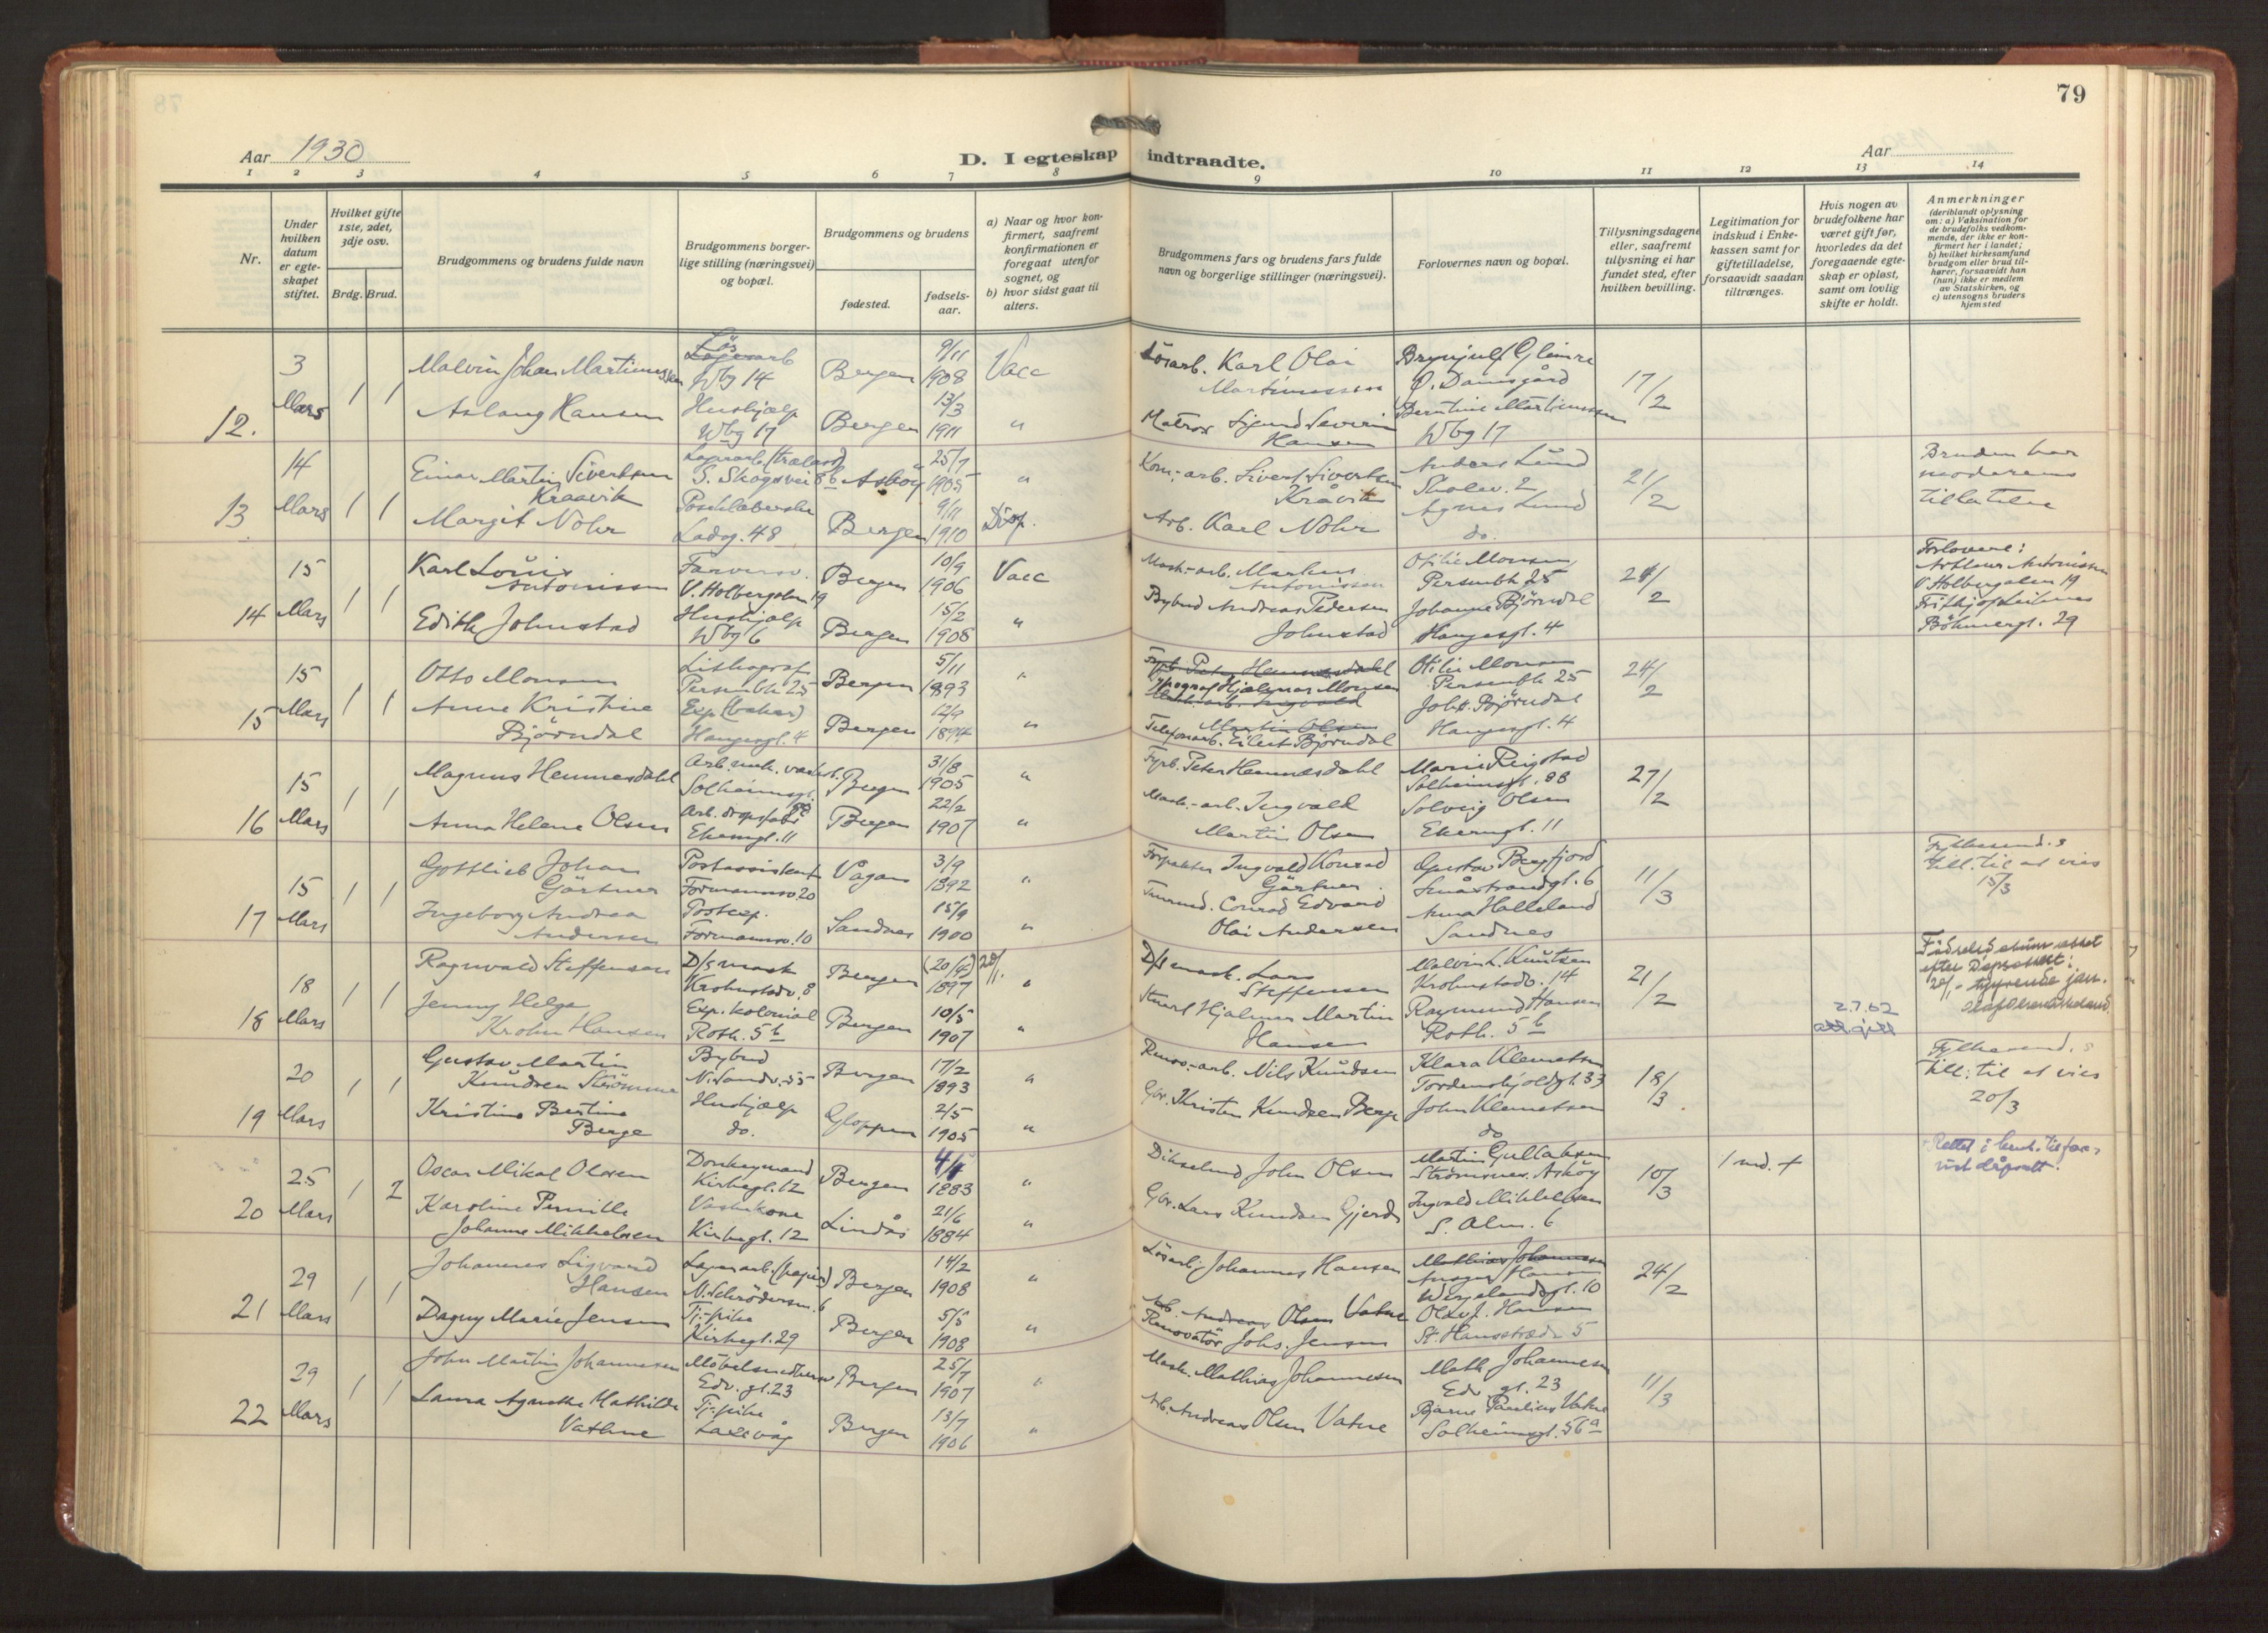 79
Aar 1930
D. I egteskap indtraadte.
Aar
1 2 3 4 5 6 7 8 9 10 11 12 13 14
Nr.
Under
hvilken
datum
er egte-
skapet
stiftet.
Hvilket gifte
1ste, 2det,
3dje osv.
Brdg. Brud.
Brudgommens og brudens fulde navn
Brudgommens borger-
lige stilling (næringsvei)
og bopæl.
Brudgommens og brudens
fødested.
fødsels-
aar.
a) Naar og hvor kon-
firmert, saafremt
konfirmationen er
foregaat utenfor
sognet, og
b) hvor sidst gaat til
alters.
Brudgommens fars og brudens fars fulde
navn og borgerlige stillinger (næringsvei).
Forlovernes navn og bopæl.
Tillysningsdagene
eller, saafremt
tillysning ei har
fundet sted, efter
hvilken bevilling.
Legitimation for
indskud i Enke-
kassen samt for
giftetilladelse,
forsaavidt saadan
tiltrænges.
Hvis nogen av
brudefolkene har
været gift før,
hvorledes da det
foregaaende egte-
skap er opløst,
samt om lovlig
skifte er holdt.
Anmerkninger
(deriblandt oplysning
om: a) Vaksination for
de brudefolks vedkom-
mende, der ikke er kon-
firmert her i landet;
b) hvilket kirkesamfund
brudgom eller brud til-
hører, forsaavidt han
(hun) ikke er medlem
av Statskirken, og
c) utensogns bruders
hjemsted
12. 3 Mars 1 1
Malvin Johan Martinussen
Lös arb
Wbg 14
Bergen 9/11 1908 Vacc
Lösarb. Karl Olai
Martinussen
Brynjulf Glimre
Ø. Damsgård
17/2
Aslaug Hansen
Hushjælp
Wbg 17
Bergen 13/3 1911 "
Matros Sigurd Severin
Hansen
Berntine Martinussen
Wbg 17
13 14 Mars 1 1
Einar Martin Sivertsen
Kraavik
Lagerarb (trælast)
S. Skogsvei 8b
Askøy 25/7 1905 "
Kom.-arb. Sivert Sivertsen
Kråvik
Anders Lund
Skolev. 2
21/2
Bruden har
moderens
tillatelse
Margit Nohr
Ladeg. 48
Bergen 9/11 1910 Disp.
Arb. Karl Nohr
Agnes Lund
do.
14 15 Mars 1 1
Karl Louis
Antonissen
Farversv.
V. Holbergsalm 19
Bergen 10/9 1906 Vacc
Mask.-arb. Markus
Antonissen
Otilie Monsen
Persenbk 25
24/2
Forlovere:
Antonissen
V. Holbergsalm 19
Fritjof
Böhmergt. 29
Edith Johnstad
Hushjælp
Wbg 6
Bergen 15/2 1908 "
Bybud Andreas Pedersen
Johnstad
Johanne Björndal
Haugesgt. 4
15 15 Mars 1 1
Otto Monsen
Lithograf
Persenbk 25
Bergen 5/11 1893 "
Fyrb. Peter Hennesdahl
Typograf Hjalmar Monsen
Mask.-arb. Ingvald
Martin Olsen
Otilie Monsen
Persenbk 25
24/2
Anne Kristine
Björndal
Exp. (baker)
Haugesgt. 4
Bergen 12/9 1894 "
Telefonarb. Eilert Björndal
Joh. Björndal
Haugesgt. 4
16 15 Mars 1 1
Magnus Hennesdahl
Arb. mek. verkst.
Solheimsgt. 88
Bergen 31/8 1905 "
Fyrb. Peter Hennesdahl
Marie Reigstad
Solheimsgt. 88
27/2
Anna Helene Olsen
Ekerngt. 11
Bergen 22/2 1907 "
Mask.-arb. Ingvald
Martin Olsen
Solveig Olsen
Ekerngt. 11
17 15 Mars 1 1
Gottlieb Johan
Gärtner
Postassistent
Formannsv. 20
Vågan 3/9 1892 "
Forpakter Ingvald Konrad
Gärtner
Gustav Bergfjord
Småstrandgt. 6
11/3
Fylkesmd.s
till. til at vies
15/3
Ingeborg Andrea
Andersen
Postexp.
Formannsv. 10
Sandnes 15/9 1900 "
Conrad Edvard
Olai Andersen
Anna Halleland
Sandnes
18 18 Mars 1 1
Ragnvald Steffensen
D/s mask
Krohnstadv. 8
Bergen (20/4) 20/1. 1897 "
D/s mask. Lars
Steffensen
Malvin L. Knutsen
Krohnstadv. 14
21/2
2.7.62
Födselsdatum rettet
efter Dåpsattest:
20/1 - tyvende jan.
Jenny Helga
Krohn Hansen
Exp. kolonial
Roth. 5b
Bergen 10/5 1907 "
Hjalmar Martin
Hansen
Raymund Hansen
Roth. 5b
19 20 Mars 1 1
Gustav Martin
Knudsen Strömme
Bybud
N. Sandv. 55
Bergen 17/2 1893 "
Renov.-arb. Nils Knudsen
Klara Klemetsen
Tordenskjoldgt. 33
18/3
Fylkesmd.s
till. til at vies
20/3
Kristine Bertine
Berge
Hushjælp
do.
Gloppen 2/5 1905 "
Gbr. Kristen Knudsen Berge
John Klemetsen
do
20 25 Mars 1 2
Oscar Mikal Olsen
Donkeymand
Kirkegt. 12
Bergen 4/4 1883 "
John Olsen
Martin Gullaksen
Strömsnes, Askøy
10/3
1 md. +
Karoline Pernille
Johanne Mikkelsen
Vaskekone
Kirkegt. 12
Lindås 21/6 1884 "
Gbr. Lars Knudsen Gjerde
Ingvald Mikkelsen
S. Alm. 6
21 29 Mars 1 1
Johannes Sigvard
Hansen
Lagerarb. (papir)
N. Schrödersm. 6
Bergen 14/2 1908 "
Lösarb. Johannes Hansen
Mathias Johannesen
Wergelandsgt. 10
24/2
Dagny Marie Jensen
Tj.-pike
Kirkegt. 29
Bergen 5/5 1908 "
Arb. Andreas Olsen Vatne
Renovatör Johs. Jensen
Olav J. Hansen
St. Hansstræde 5
22 29 Mars 1 1
John Martin Johannesen
Möbelsnedkersv
Edv. gt. 23
Bergen 25/7 1907 "
Mask. Mathias Johannesen
Math Johannesen
Edv. gt. 23
11/3
Laura Agnethe Mathilde
Vathne
Tj.-pike
Laxevåg
Bergen 13/7 1906 "
Arb. Andreas Olsen Vatne
Bjarne Paulius Vatne
Solheimsgt. 56a